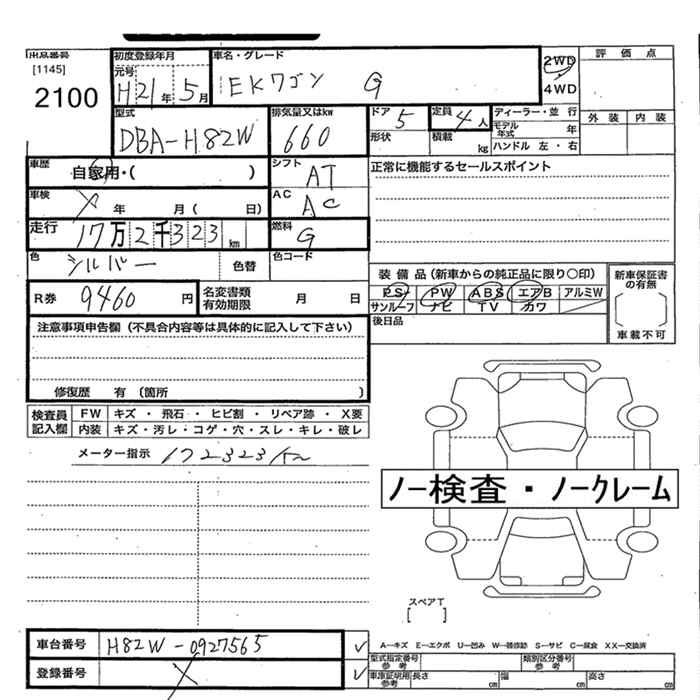 出品番号
[1145]
2100
初度登録年月
元号
H21年 5月
車名・グレード
EKワゴン G
2WD
4WD
評価点
外装 内装
型式
DBA-H82W
排気量又はkw
660
ドア
5
形状
定員
4人
積載
kg
ディーラー・並行
モデル年式 年
ハンドル 左・右
車歴
自家用・( )
シフト
AT
正常に機能するセールスポイント
車検
年 月( 日)
AC
AC
走行
17万2千323km
燃料
G
色
シルバー
色替
色コード
装備品(新車からの純正品に限り○印)
PS PW ABS エアB アルミW
サンルーフ ナビ TV カワ
新車保証書の有無
車載不可
R券
9460円
名変書類有効期限
月 日
後日品
注意事項申告欄(不具合内容等は具体的に記入して下さい)
修復歴 有(箇所 )
検査員記入欄
FW キズ・飛石・ヒビ割・リペア跡・X要
内装 キズ・汚レ・コゲ・穴・スレ・キレ・破レ
メーター指示 172323km
ノー検査・ノークレーム
スペアT
[ ]
車台番号
H82W-0927565
登録番号
A―キズ E―エクボ U―凹み W―補修跡 S―サビ C―腐食 XX―交換済
型式指定番号
参考
類別区分番号
参考
車庫証明用
参考
長さ cm 幅 cm 高さ cm